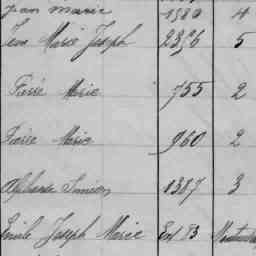 Jean Marie 1980 4
Jean Marie Joseph 2396 5
Pierre Marie 755 2
Pierre Marie 960 2
Alphonse Siméon 1387 3
Emile Joseph Marie Ext 83